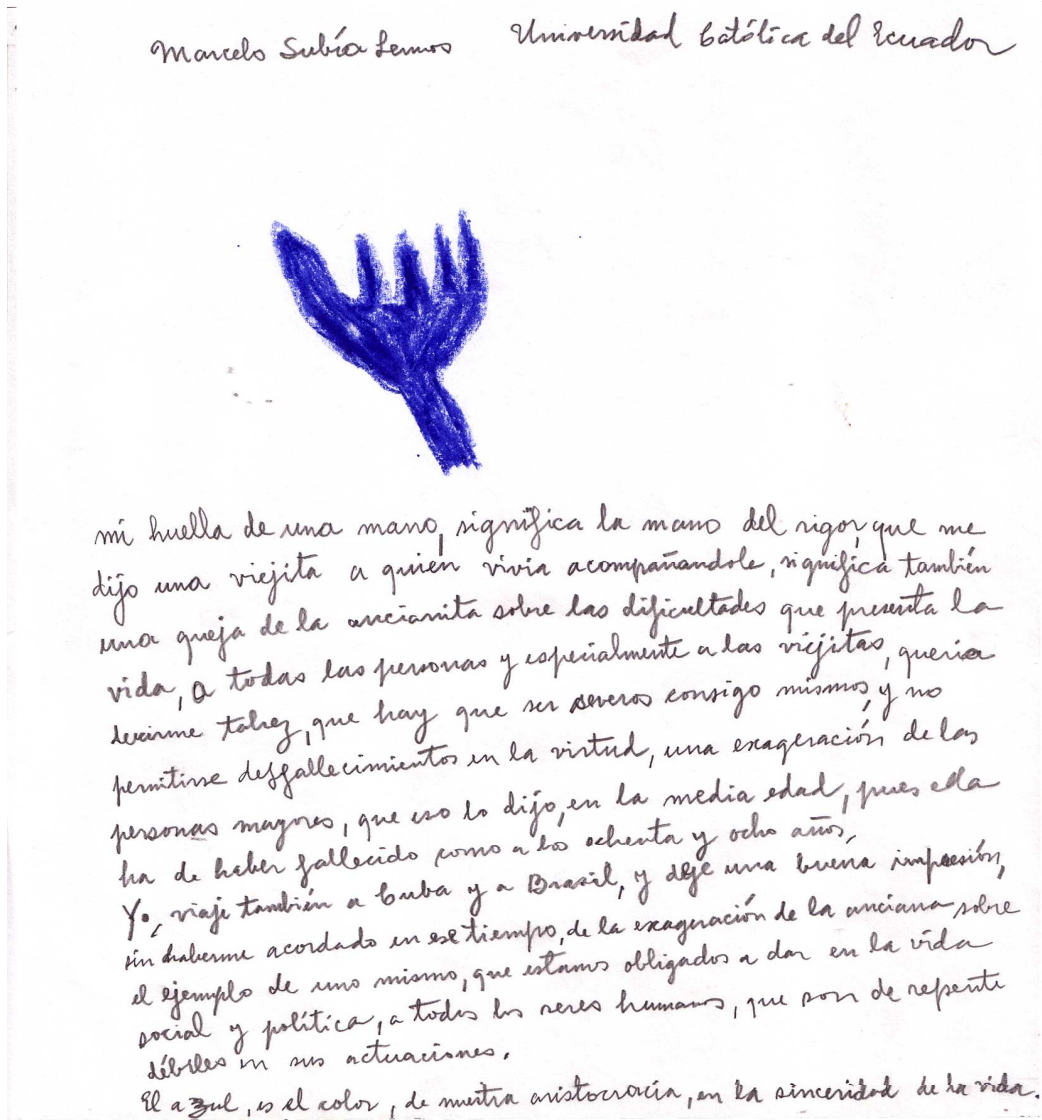 Marcelo Subía Lemos Universidad Católica del Ecuador
mi huella de una mano, significa la mano del rigor, que me
dijo una viejita a quién vivia acompañandole, significa también
una queja de la ancianita sobre las dificultades que presenta la
vida, a todas las personas y especialmente a las viejitas, queria
decirme talvez, que hay que ser severos consigo mismos, y no
permitirse desfallecimientos en la virtud, una exageración de las
personas mayores, que eso lo dijo, en la media edad, pues ella
ha de haber fallecido como a los ochenta y ocho años.
Yo, viaje también a Cuba y a Brasil, y deje una buena impresión,
sin haberme acordado en ese tiempo, de la exageración de la anciana sobre
el ejemplo de uno mismo, que estamos obligados a dar en la vida
social y política, a todos los seres humanos, que son de repente
débiles en sus actuaciones.
El azul, es el color, de nuestra aristocracia, en la sinceridad de la vida.